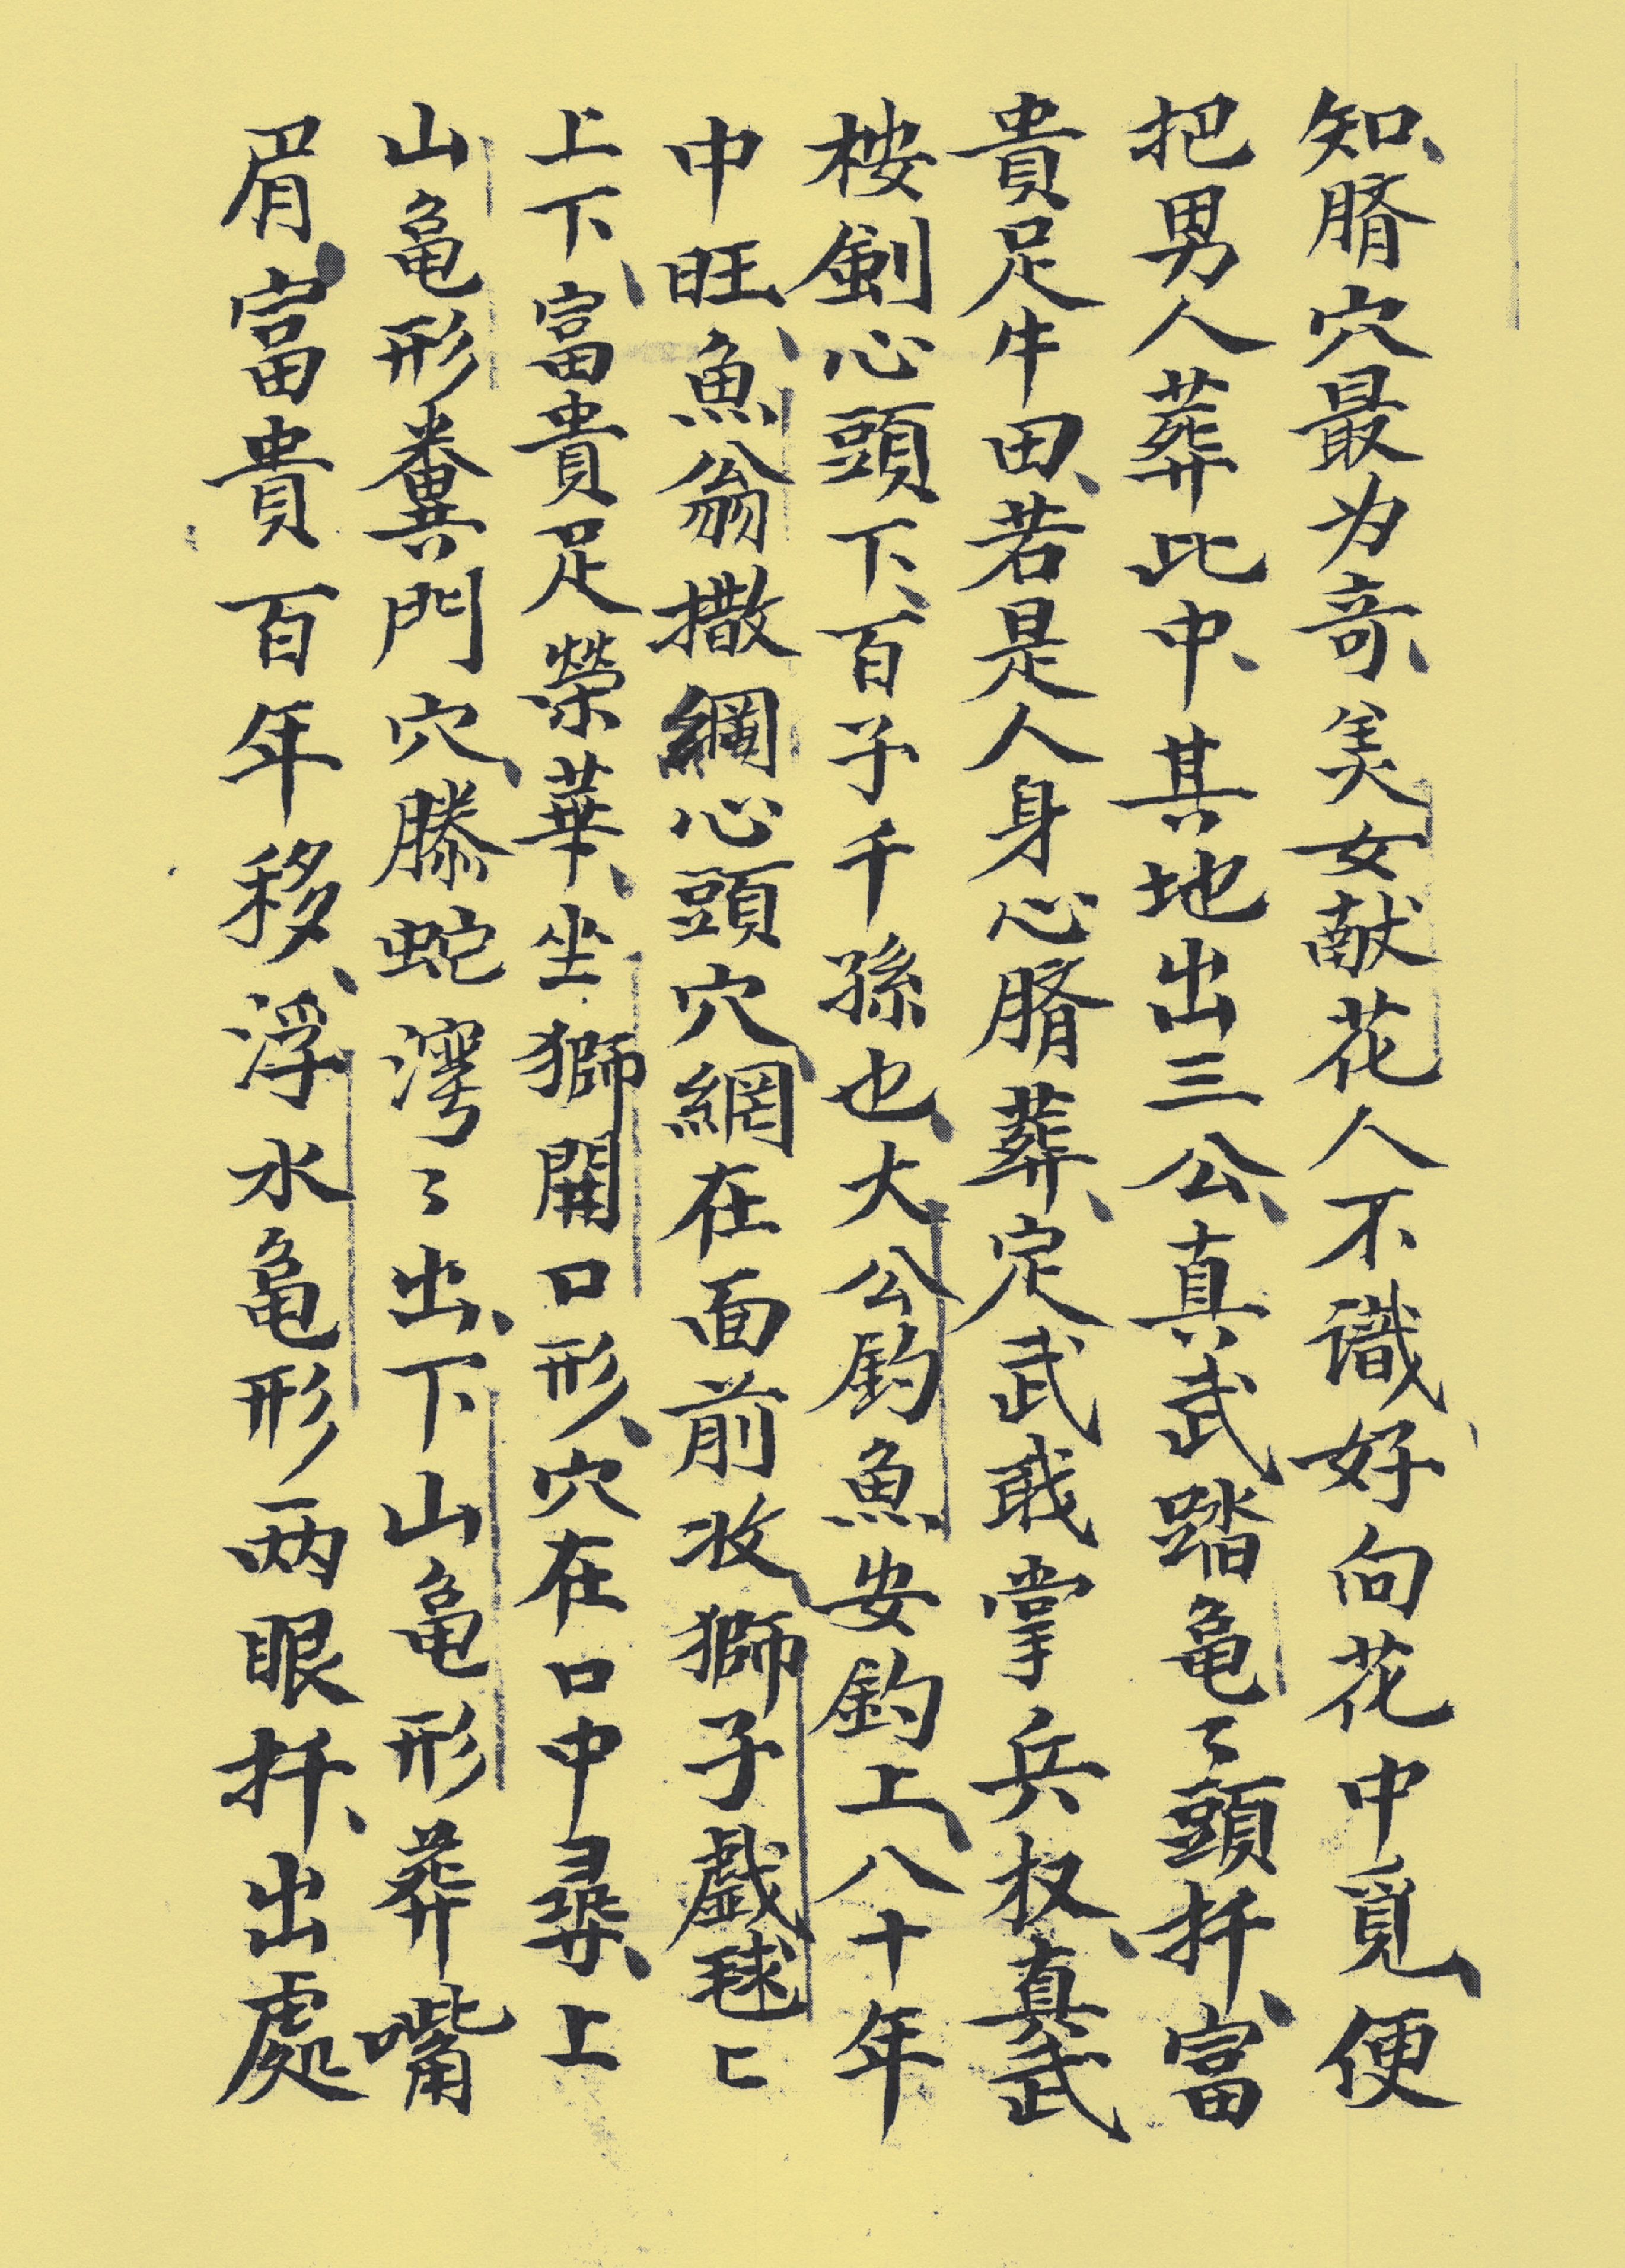 知、臍穴最为竒、美女献花人不識、好向花中覓、便
把男人葬此中、其地出三公、真武踏亀〻頭扦、富
貴足牛田、若是人身心臍葬、定武戢掌兵权、真武
桉劍心頭下、百子千孫也、大公釣魚安釣上、八十年
中旺、魚翁撒網心頭穴、網在面前收、獅子戲毬〻
上下、富貴足榮華、坐獅開口形、穴在口中尋、上
山亀形糞門穴、滕蛇灣〻出、下山亀形葬嘴
眉、富貴百年移、浮水亀形两眼扦、出處